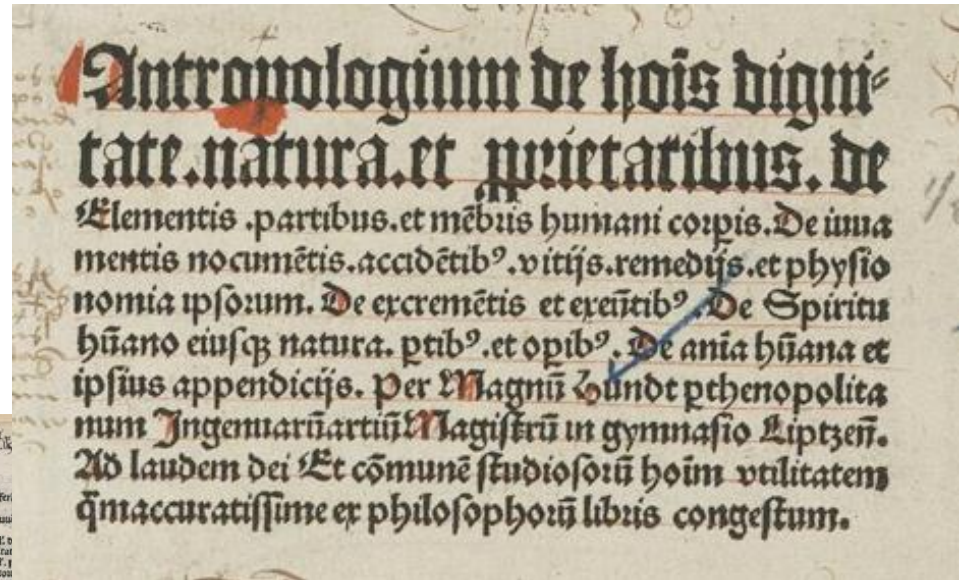 Antropologium de hoīs digni⸗
tate.natura.et ꝓprietatibus.de
Elementis .partibus.et mēbris humani corꝑis.De iuua
mentis nocumētis.accidētibꝰ.vitijs.remedijs.et physio
nomia ipsorum. De excremētis et exeūtibꝰ .De Spiritu
hūano eiusqꝫ natura. ꝑtibꝰ.et oꝑibꝰ. De anīa hūana et
ipsius appendicijs. Per Magnū Hundt ꝑthenopolita
num Ingenuarūartiū Magistrū in gymnasio Liptzeñ.
Ad laudem dei Et cōmunē studiosorū hoīm vtilitatem
q̄maccuratissime ex philosophorū libris congestum.